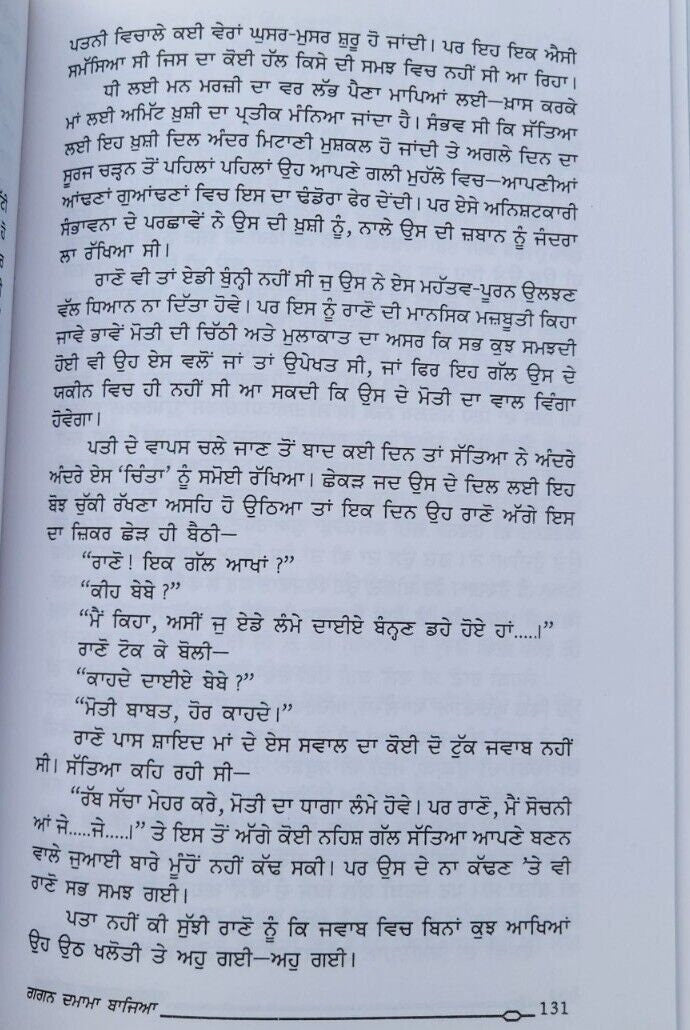 ਪਤਨੀ ਵਿਚਾਲੇ ਕਈ ਵੇਰਾਂ ਘੁਸਰ-ਮੁਸਰ ਸ਼ੁਰੂ ਹੋ ਜਾਂਦੀ। ਪਰ ਇਹ ਇਕ ਐਸੀ
ਸਮੱਸਿਆ ਸੀ ਜਿਸ ਦਾ ਕੋਈ ਹੱਲ ਕਿਸੇ ਦੀ ਸਮਝ ਵਿਚ ਨਹੀਂ ਸੀ ਆ ਰਿਹਾ।
ਧੀ ਲਈ ਮਨ ਮਰਜ਼ੀ ਦਾ ਵਰ ਲੱਭ ਪੈਣਾ ਮਾਪਿਆਂ ਲਈ—ਖ਼ਾਸ ਕਰਕੇ
ਮਾਂ ਲਈ ਅਮਿੱਟ ਖ਼ੁਸ਼ੀ ਦਾ ਪ੍ਰਤੀਕ ਮੰਨਿਆ ਜਾਂਦਾ ਹੈ। ਸੰਭਵ ਸੀ ਕਿ ਸੱਤਿਆ
ਲਈ ਇਹ ਖ਼ੁਸ਼ੀ ਦਿਲ ਅੰਦਰ ਮਿਟਾਣੀ ਮੁਸ਼ਕਲ ਹੋ ਜਾਂਦੀ ਤੇ ਅਗਲੇ ਦਿਨ ਦਾ
ਸੂਰਜ ਚੜ੍ਹਨ ਤੋਂ ਪਹਿਲਾਂ ਪਹਿਲਾਂ ਉਹ ਆਪਣੇ ਗਲੀ ਮੁਹੱਲੇ ਵਿਚ—ਆਪਣੀਆਂ
ਆਂਢਣਾਂ ਗੁਆਂਢਣਾਂ ਵਿਚ ਇਸ ਦਾ ਢੰਡੋਰਾ ਫੇਰ ਦੇਂਦੀ। ਪਰ ਏਸੇ ਅਨਿਸ਼ਟਕਾਰੀ
ਸੰਭਾਵਨਾ ਦੇ ਪਰਛਾਵੇਂ ਨੇ ਉਸ ਦੀ ਖ਼ੁਸ਼ੀ ਨੂੰ, ਨਾਲੇ ਉਸ ਦੀ ਜ਼ਬਾਨ ਨੂੰ ਜੰਦਰਾ
ਲਾ ਰੱਖਿਆ ਸੀ।
ਰਾਣੋ ਵੀ ਤਾਂ ਏਡੀ ਬੁੰਨ੍ਹੀ ਨਹੀਂ ਸੀ ਜੁ ਉਸ ਨੇ ਏਸ ਮਹੱਤਵ-ਪੂਰਨ ਉਲਝਣ
ਵੱਲ ਧਿਆਨ ਨਾ ਦਿੱਤਾ ਹੋਵੇ। ਪਰ ਇਸ ਨੂੰ ਰਾਣੋ ਦੀ ਮਾਨਸਿਕ ਮਜ਼ਬੂਤੀ ਕਿਹਾ
ਜਾਵੇ ਭਾਵੇਂ ਮੋਤੀ ਦੀ ਚਿੱਠੀ ਅਤੇ ਮੁਲਾਕਾਤ ਦਾ ਅਸਰ ਕਿ ਸਭ ਕੁਝ ਸਮਝਦੀ
ਹੋਈ ਵੀ ਉਹ ਏਸ ਵਲੋਂ ਜਾਂ ਤਾਂ ਉਪੇਖਤ ਸੀ, ਜਾਂ ਫਿਰ ਇਹ ਗੱਲ ਉਸ ਦੇ
ਯਕੀਨ ਵਿਚ ਹੀ ਨਹੀਂ ਸੀ ਆ ਸਕਦੀ ਕਿ ਉਸ ਦੇ ਮੋਤੀ ਦਾ ਵਾਲ ਵਿੰਗਾ
ਹੋਵੇਗਾ।
ਪਤੀ ਦੇ ਵਾਪਸ ਚਲੇ ਜਾਣ ਤੋਂ ਬਾਦ ਕਈ ਦਿਨ ਤਾਂ ਸੱਤਿਆ ਨੇ ਅੰਦਰੇ
ਅੰਦਰੇ ਏਸ ‘ਚਿੰਤਾ’ ਨੂੰ ਸਮੋਈ ਰੱਖਿਆ। ਛੇਕੜ ਜਦ ਉਸ ਦੇ ਦਿਲ ਲਈ ਇਹ
ਬੋਝ ਚੁੱਕੀ ਰੱਖਣਾ ਅਸਹਿ ਹੋ ਉਠਿਆ ਤਾਂ ਇਕ ਦਿਨ ਉਹ ਰਾਣੋ ਅੱਗੇ ਇਸ
ਦਾ ਜ਼ਿਕਰ ਛੇੜ ਹੀ ਬੈਠੀ—
“ਰਾਣੋ! ਇਕ ਗੱਲ ਆਖਾਂ ?”
“ਕੀਹ ਬੇਬੇ ?”
“ਮੈਂ ਕਿਹਾ, ਅਸੀਂ ਜੁ ਏਡੇ ਲੰਮੇ ਦਾਈਏ ਬੰਨ੍ਹਣ ਡਹੇ ਹੋਏ ਹਾਂ.....।”
ਰਾਣੋ ਟੋਕ ਕੇ ਬੋਲੀ—
“ਕਾਹਦੇ ਦਾਈਏ ਬੇਬੇ ?”
“ਮੋਤੀ ਬਾਬਤ, ਹੋਰ ਕਾਹਦੇ।”
ਰਾਣੋ ਪਾਸ ਸ਼ਾਇਦ ਮਾਂ ਦੇ ਏਸ ਸਵਾਲ ਦਾ ਕੋਈ ਦੋ ਟੁੱਕ ਜਵਾਬ ਨਹੀਂ
ਸੀ। ਸੱਤਿਆ ਕਹਿ ਰਹੀ ਸੀ—
“ਰੱਬ ਸੱਚਾ ਮੇਹਰ ਕਰੇ, ਮੋਤੀ ਦਾ ਧਾਗਾ ਲੰਮੇ ਹੋਵੇ। ਪਰ ਰਾਣੋ, ਮੈਂ ਸੋਚਨੀ
ਆਂ ਜੇ.....ਜੇ.....।” ਤੇ ਇਸ ਤੋਂ ਅੱਗੇ ਕੋਈ ਨਹਿਸ਼ ਗੱਲ ਸੱਤਿਆ ਆਪਣੇ ਬਣਨ
ਵਾਲੇ ਜੁਆਈ ਬਾਰੇ ਮੂੰਹੋਂ ਨਹੀਂ ਕੱਢ ਸਕੀ। ਪਰ ਉਸ ਦੇ ਨਾ ਕੱਢਣ ’ਤੇ ਵੀ
ਰਾਣੋ ਸਭ ਸਮਝ ਗਈ।
ਪਤਾ ਨਹੀਂ ਕੀ ਸੁੱਝੀ ਰਾਣੋ ਨੂੰ ਕਿ ਜਵਾਬ ਵਿਚ ਬਿਨਾਂ ਕੁਝ ਆਖਿਆਂ
ਉਹ ਉਠ ਖਲੋਤੀ ਤੇ ਅਹੁ ਗਈ—ਅਹੁ ਗਈ।
ਗਗਨ ਦਮਾਮਾ ਬਾਜਿਆ 131